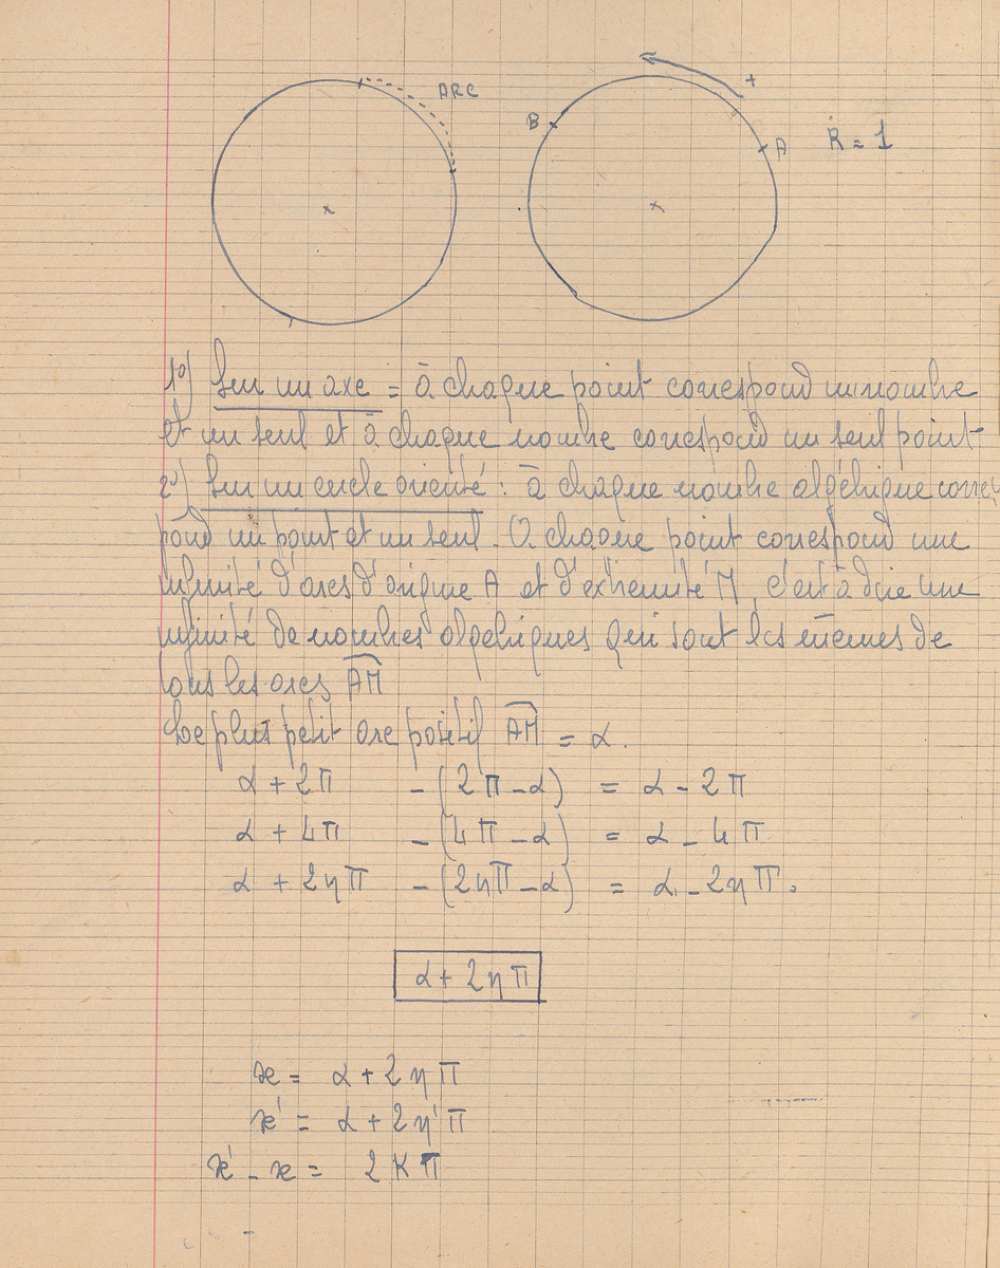 ARC
+
B
A
R = 1
1°) Sur un axe = à chaque point correspond un nombre
et un seul et à chaque nombre correspond un seul point
2°) Sur un cercle orienté : à chaque nombre algébrique corres
pond un point et un seul. A chaque point correspond une
infinité d'arcs d'origine A et d'extrémité M, c'est à dire une
infinité de nombres algébriques qui sont les mêmes de
tous les arcs AM
Le plus petit arc positif AM = α.
α + 2π -(2π-α) = α - 2π
α + 4π -(4π-α) = α - 4π
α + 2ηπ -(2ηπ-α) = α - 2ηπ.
α + 2ηπ
x = α + 2ηπ
x' = α + 2η'π
x' - x = 2Kπ